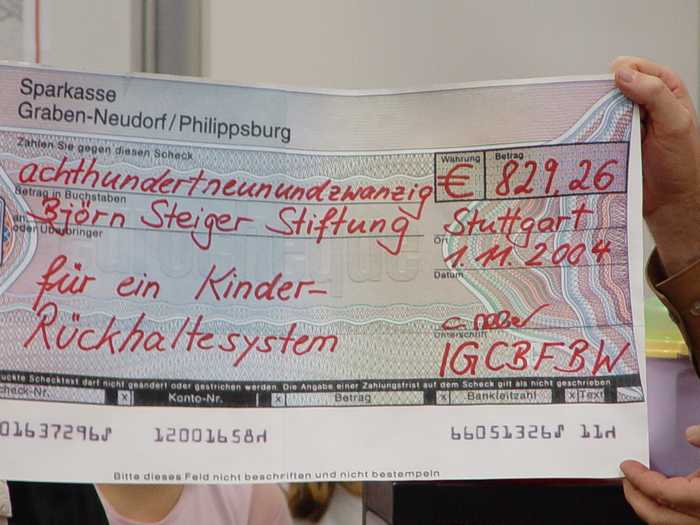 Sparkasse
Graben-Neudorf/Philippsburg
Zahlen Sie gegen diesen Scheck
Währung Betrag
achthundertneunundzwanzig € 829,26
Betrag in Buchstaben
an Björn Steiger Stiftung Stuttgart
oder Überbringer Ort
1.11.2004
Datum
für ein Kinder-
Rückhaltesystem
Unterschrift
IGCBFBW
Schecktext darf nicht geändert oder gestrichen werden. Die Angabe einer Zahlungsfrist auf dem Scheck gilt als nicht geschrieben
check-Nr. X Konto-Nr. X Betrag X Bankleitzahl X Text
01637296 12001658 66051326 11
Bitte dieses Feld nicht beschriften und nicht bestempeln